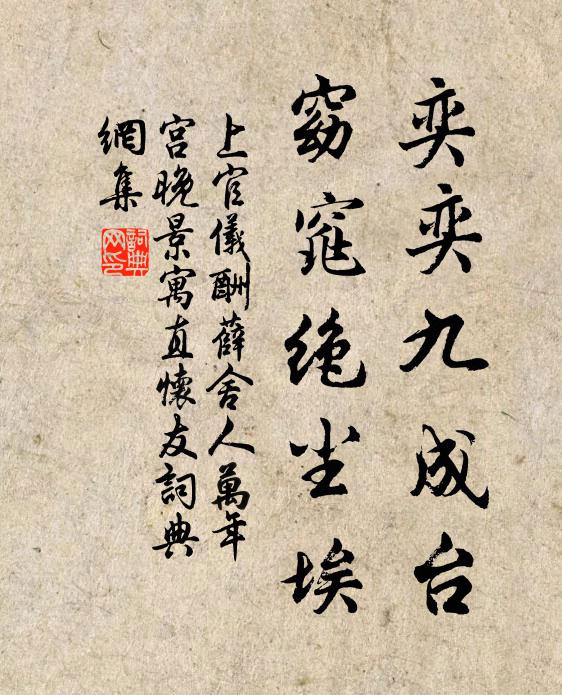 奕奕九成台
窈窕绝尘埃
上官儀酬薛舍人萬年
宫晚景寓直懷友詞典
網集
詞典
网印